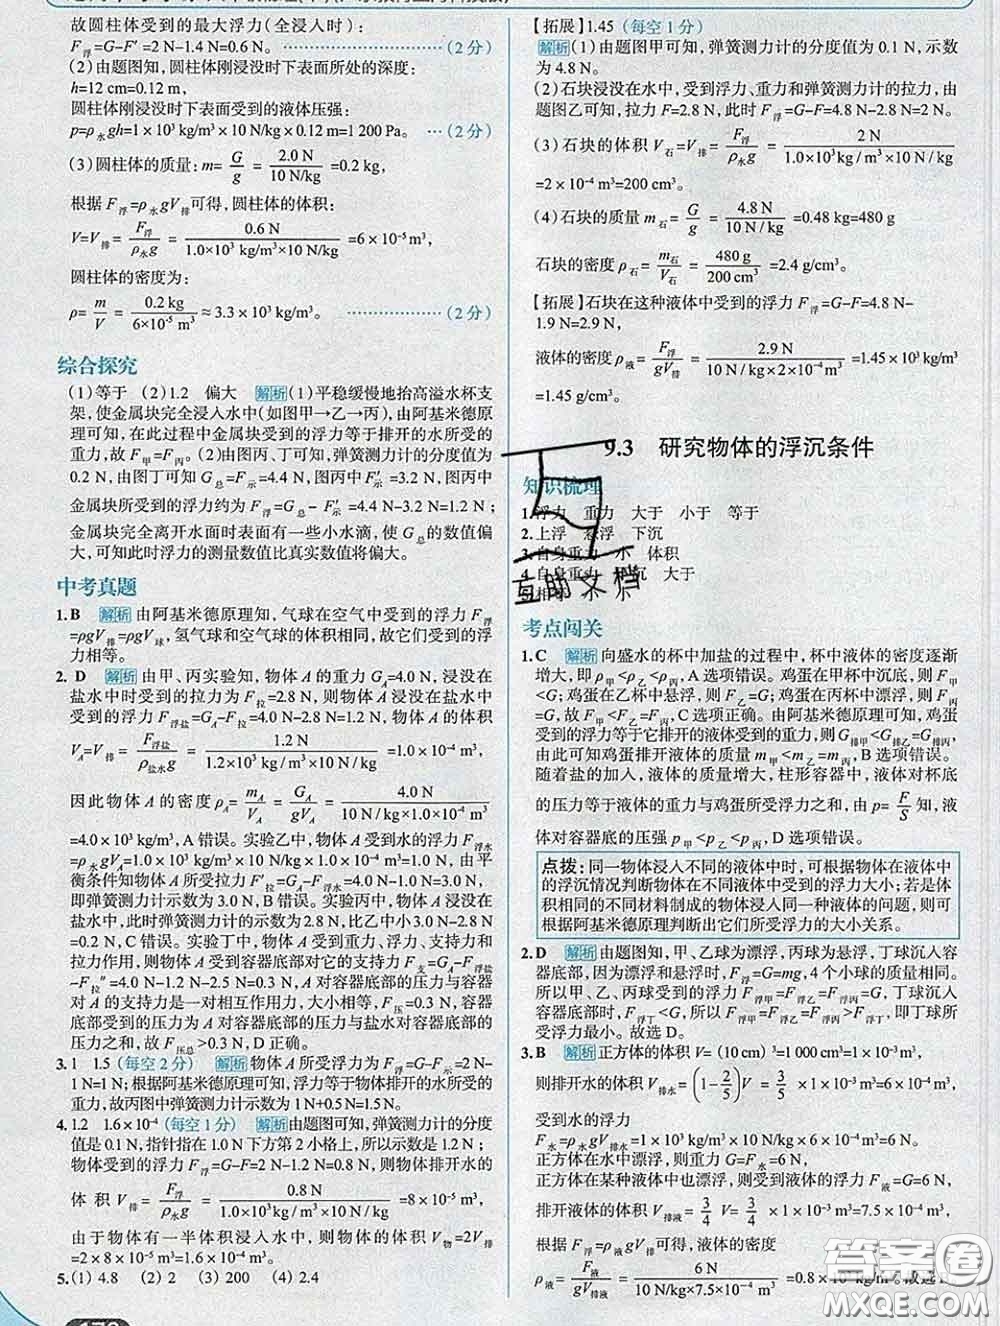 故圆柱体受到的最大浮力(全浸入时):
F浮=G-F′=2 N-1.4 N=0.6 N。 ……(2分)
(2)由题图知,圆柱体刚浸没时下表面所处的深度:
h=12 cm=0.12 m,
圆柱体刚浸没时下表面受到的液体压强:
p=ρ水gh=1×10³ kg/m³×10 N/kg×0.12 m=1 200 Pa。 …(2分)
(3)圆柱体的质量:m=G/g=2.0 N/10 N/kg=0.2 kg,
根据F浮=ρ水gV排可得,圆柱体的体积:
V=V排=F浮/ρ水g=0.6 N/1.0×10³ kg/m³×10 N/kg=6×10⁻⁵ m³,
圆柱体的密度为:
ρ=m/V=0.2 kg/6×10⁻⁵ m³≈3.3×10³ kg/m³。 ……(2分)
综合探究
(1)等于 (2)1.2 偏大 解析(1)平稳缓慢地抬高溢水杯支
架,使金属块完全浸入水中(如图甲→乙→丙),由阿基米德原
理可知,在此过程中金属块受到的浮力等于排开的水所受的
重力,故F甲=F丙。(2)由图丙、丁可知,弹簧测力计的分度值为
0.2 N,由图丁可知G总=F示=4.4 N,图丙中F′示=3.2 N,图丙中
金属块所受到的浮力约为F浮=F示-F′示=4.4 N-3.2 N=1.2 N;
金属块完全离开水面时表面有一些小水滴,使G总的数值偏
大,可知此时浮力的测量数值比真实数值将偏大。
中考真题
1.B 解析由阿基米德原理知,气球在空气中受到的浮力F浮
=ρgV排=ρgV球,氢气球和空气球的体积相同,故它们受到的浮
力相等。
2. D 解析由甲、丙实验知,物体A的重力GA=4.0 N,浸没在
盐水中时受到的拉力为F拉=2.8 N,则物体A浸没在盐水中
受到的浮力F浮盐=GA-F拉=4.0 N-2.8 N=1.2 N,物体A的体积
VA=V排=F浮盐/ρ盐水g=1.2 N/1.2×10³ kg/m³×10 N/kg=1.0×10⁻⁴ m³,
因此物体A的密度ρA=mA/VA=GA/gVA=4.0 N/10 N/kg×1.0×10⁻⁴ m³
=4.0×10³ kg/m³,A错误。实验乙中,物体A受到水的浮力F浮水
=ρ水gVA=1.0×10³ kg/m³×10 N/kg×1.0×10⁻⁴ m³=1.0 N,由平
衡条件知物体A所受拉力F′拉=GA-F浮水=4.0 N-1.0 N=3.0 N,
即弹簧测力计示数为3.0 N,B错误。实验丙中,物体A浸没在
盐水中,此时弹簧测力计的示数为2.8 N,比乙中小3.0 N-2.8 N
=0.2 N,C错误。实验丁中,物体A受到重力、浮力、支持力和
拉力作用,则A受到容器底部对它的支持力F支=GA-F浮盐
-F拉″=4.0 N-1.2 N-2.5 N=0.3 N,A对容器底部的压力与容器
对A的支持力是一对相互作用力,大小相等,F压=0.3 N,容器
底部受到的压力为A对容器底部的压力与盐水对容器底部的
压力之和,故F压总>0.3 N,D正确。
3.1 1.5(每空2分) 解析物体A所受浮力为F浮=G-F示=2 N-
1 N=1 N;根据阿基米德原理可知,浮力等于物体排开的水所受的
重力,故丙图中弹簧测力计示数为1 N+0.5 N=1.5 N。
4.1.2 1.6×10⁻⁴(每空1分) 解析由题图可知,弹簧测力计的分度
值是0.1 N,指针指在1.0 N下方第2小格上,所以示数是1.2 N;
物体受到的浮力F浮=G-F=2 N-1.2 N=0.8 N,则物体排开水的
体积V排=F浮/ρ水g=0.8 N/1.0×10³ kg/m³×10 N/kg=8×10⁻⁵ m³,
由于物体有一半体积浸入水中,则物体的体积V物=2V排=
2×8×10⁻⁵ m³=1.6×10⁻⁴ m³。
5.(1)4.8 (2)2 (3)200 (4)2.4
【拓展】1.45(每空1分)
解析(1)由题图甲可知,弹簧测力计的分度值为0.1 N,示数
为4.8 N。
(2)石块浸没在水中,受到浮力、重力和弹簧测力计的拉力,由
题图乙可知,拉力F=2.8 N,此时F浮=G-F=4.8 N-2.8 N=2 N。
(3)石块的体积V石=V排=F浮/ρ水g=2 N/1.0×10³ kg/m³×10 N/kg
=2×10⁻⁴ m³=200 cm³。
(4)石块的质量m石=G/g=4.8 N/10 N/kg=0.48 kg=480 g
石块的密度ρ石=m石/V石=480 g/200 cm³=2.4 g/cm³。
【拓展】石块在这种液体中受到的浮力F浮=G-F=4.8 N-
1.9 N=2.9 N,
液体的密度ρ液=F浮/gV排=2.9 N/10 N/kg×2×10⁻⁴ m³=1.45×10³ kg/m³
=1.45 g/cm³。
9.3 研究物体的浮沉条件
知识梳理
1.浮力 重力 大于 小于 等于
2.上浮 悬浮 下沉
3.自身重力 水 体积
4.自身重力 沉 大于
互助文档
考点闯关
1.C 解析向盛水的杯中加盐的过程中,杯中液体的密度逐渐
增大,即ρ甲<ρ乙<ρ丙,A选项错误。鸡蛋在甲杯中沉底,则F甲
<G;鸡蛋在乙杯中悬浮,则F乙=G;鸡蛋在丙杯中漂浮,则F丙
=G,故F甲<F乙=F丙,C选项正确。由阿基米德原理可知,鸡蛋
受到的浮力等于它排开的液体受到的重力,则G排甲<G排乙=G排丙,
由此可知鸡蛋排开液体的质量m甲<m乙=m丙,B选项错误。
随着盐的加入,液体的质量增大,柱形容器中,液体对杯底
的压力等于液体的重力与鸡蛋所受浮力之和,由p=F/S知,液
体对容器底的压强p甲<p乙<p丙,D选项错误。
点拨:同一物体浸入不同的液体中时,可根据物体在液体中
的浮沉情况判断物体在不同液体中受到的浮力大小;若是体
积相同的不同材料制成的物体浸入同一种液体的问题,则可
根据阿基米德原理判断出它们所受浮力的大小关系。
2.D 解析由题图知,甲、乙球为漂浮,丙球为悬浮,丁球沉入容
器底部,因为漂浮和悬浮时,F浮=G=mg,4个小球的质量相同。
所以甲、乙、丙球受到的浮力F浮甲=F浮乙=F浮丙=G,丁球沉入
容器底部,F浮丁<G,所以F浮甲=F浮乙=F浮丙>F浮丁,即丁球所
受浮力最小。故选D。
3.B 解析正方体的体积V=(10 cm)³=1 000 cm³=1×10⁻³ m³,
则排开水的体积V排水=(1-2/5)V=3/5×1×10⁻³ m³=6×10⁻⁴ m³,
受到水的浮力
F水=ρ水gV排水=1×10³ kg/m³×10 N/kg×6×10⁻⁴ m³=6 N,
正方体在水中漂浮,则重力G=F水=6 N,
正方体在某种液体中也漂浮,则受到的浮力F液=G=6 N,
排开液体的体积V排液=3/4V=3/4×1×10⁻³ m³=7.5×10⁻⁴ m³,
根据F浮=ρ液gV排可得,液体的密度
ρ液=F液/gV排液=6 N/10 N/kg×7.5×10⁻⁴ m³=0.8×10³ kg/m³。故选B。
答案圈
MXQE.COM